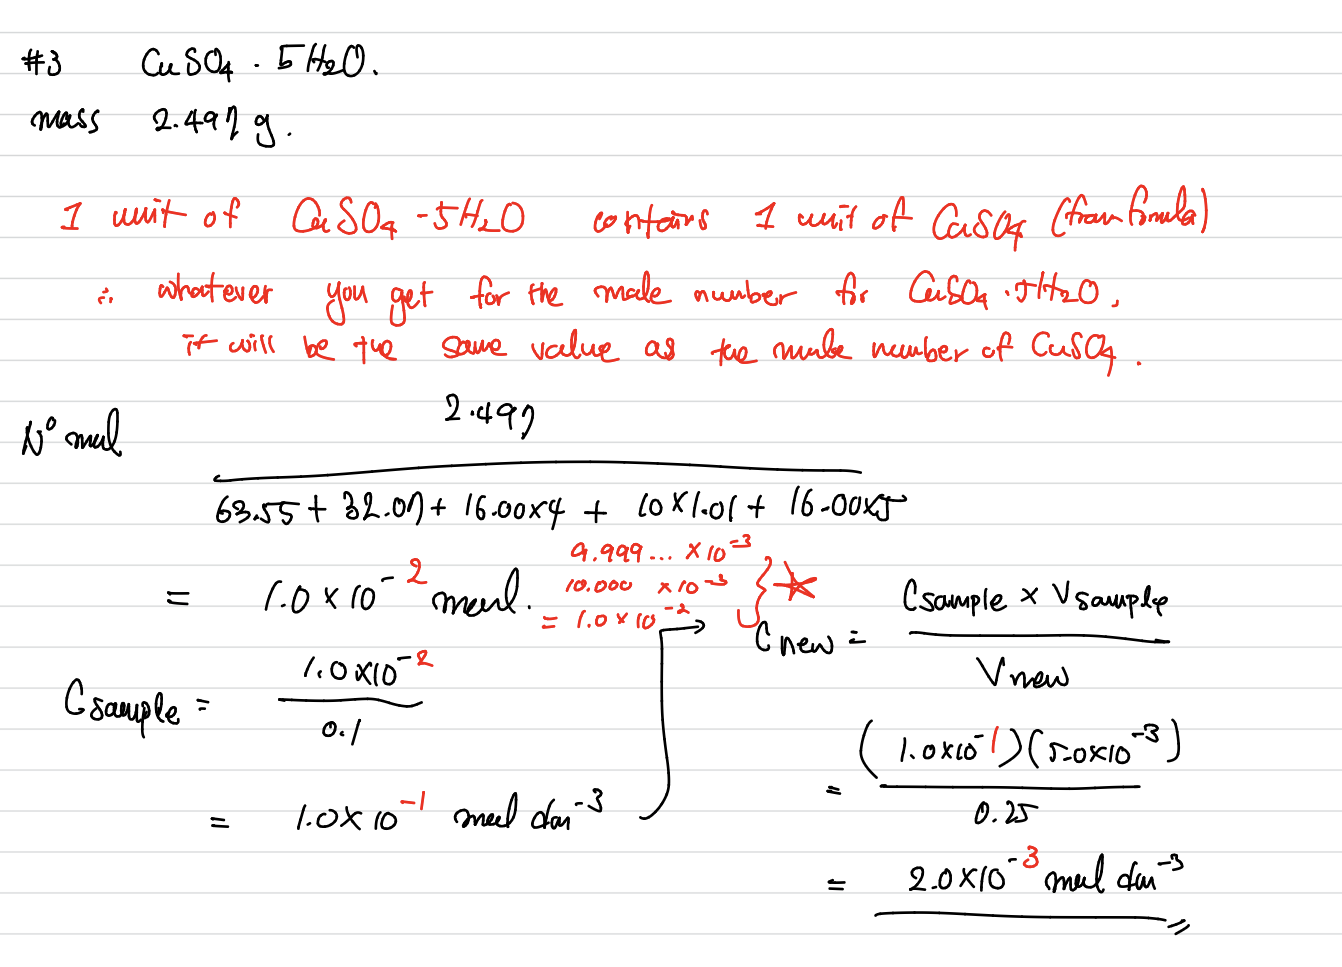 #3 CuSO4 · 5H2O.
mass 2.497 g.
1 unit of CuSO4 - 5H2O contains 1 unit of CuSO4 (from formula)
∴ whatever you get for the mole number for CuSO4 · 5H2O,
it will be the same value as the mole number of CuSO4.
Nº mol
2.497
63.55 + 32.07 + 16.00×4 + 10×1.01 + 16.00×5
= 1.0 × 10⁻² mol.
9.999... × 10⁻³
10.000 × 10⁻³
= 1.0 × 10⁻²
Csample = 1.0×10⁻² / 0.1
= 1.0 × 10⁻¹ mol dm⁻³
Cnew = Csample × Vsample / Vnew
= (1.0×10⁻¹)(5.0×10⁻³) / 0.25
= 2.0×10⁻³ mol dm⁻³